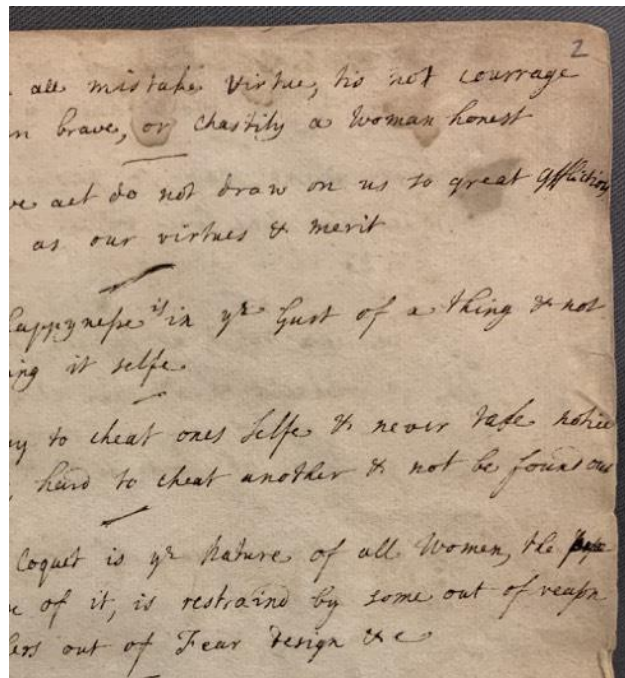 2
all mistake virtue, tis not courrage
brave, or chastity a Woman honest
act do not draw on us so great affliction
as our virtues & merit
happynesse is in ye Gust of a thing & not
it selfe
to cheat ones selfe & never take notice
hard to cheat another & not be found out
Coquet is ye Nature of all Women, the
of it, is restraind by some out of reason
out of Fear design &c